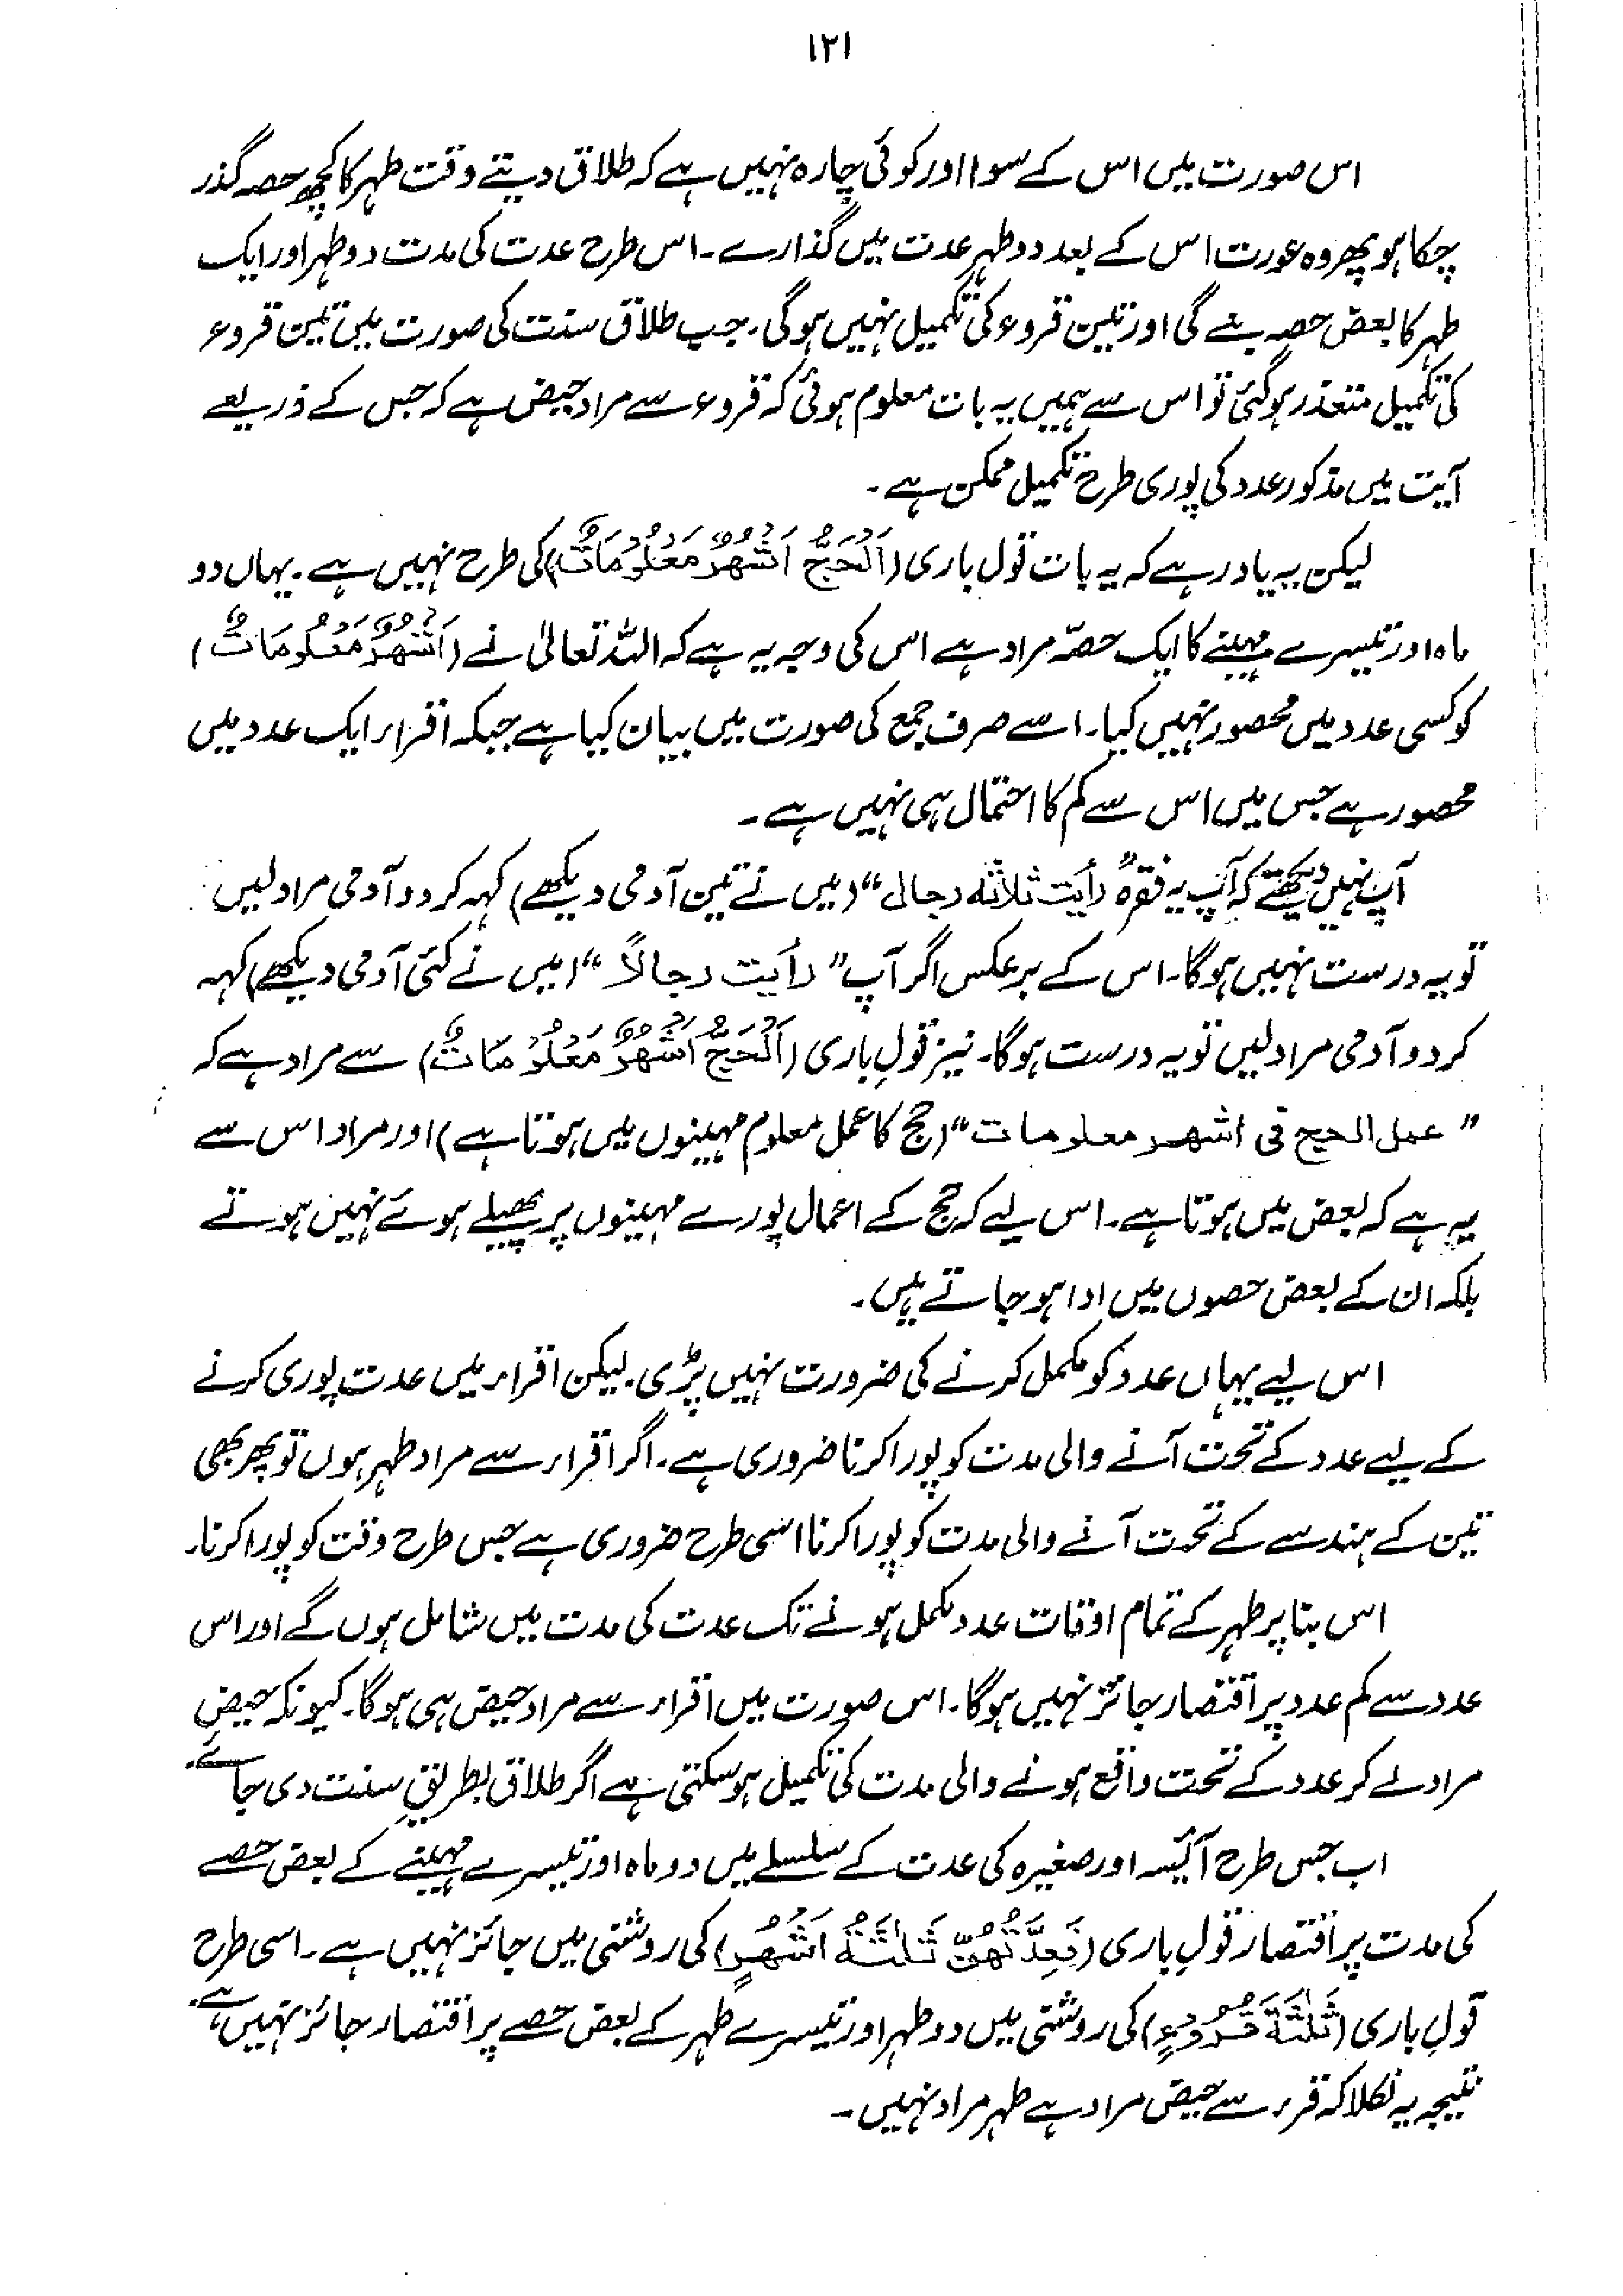 ۱۲۱
اس صورت میں اس کے سوا اور کوئی چارہ نہیں ہے کہ طلاق دیتے وقت طہر کا کچھ حصہ گذر
چکا ہو پھر وہ عورت اس کے بعد دو طہر عدت میں گذارے۔ اس طرح عدت کی مدت دو طہر اور ایک
طہر کا بعض حصہ بنے گی اور تین قروء کی تکمیل نہیں ہوگی۔ جب طلاق سنت کی صورت میں تین قروء
کی تکمیل متعذر ہوگئی تو اس سے ہمیں یہ بات معلوم ہوئی کہ قروء سے مراد حیض ہے کہ جس کے ذریعے
آیت میں مذکور عدد کی پوری طرح تکمیل ممکن ہے۔
لیکن یہ یاد رہے کہ یہ بات قول باری (اَلْحَجُّ اَشْهُرٌ مَعْلُوْمَاتٌ) کی طرح نہیں ہے۔ یہاں دو
ماہ اور تیسرے مہینے کا ایک حصّہ مراد ہے اس کی وجہ یہ ہے کہ اللہ تعالیٰ نے (اَشْهُرٌ مَعْلُوْمَاتٌ)
کو کسی عدد میں محصور نہیں کیا۔ اسے صرف جمع کی صورت میں بیان کیا ہے جبکہ اقراء ایک عدد میں
محصور ہے جس میں اس سے کم کا احتمال ہی نہیں ہے۔
آپ نہیں دیکھتے کہ آپ یہ فقرہ "رأیت ثلاثه رجال" (میں نے تین آدمی دیکھے) کہہ کر دو آدمی مراد لیں
تو یہ درست نہیں ہوگا۔ اس کے برعکس اگر آپ "رأیت رجالاً" (میں نے کئی آدمی دیکھے) کہہ
کر دو آدمی مراد لیں تو یہ درست ہوگا۔ نیز قولِ باری (اَلْحَجُّ اَشْهُرٌ مَعْلُوْمَاتٌ) سے مراد ہے کہ
"عمل الحج فی اشهر معلومات" (حج کا عمل معلوم مہینوں میں ہوتا ہے) اور مراد اس سے
یہ ہے کہ بعض میں ہوتا ہے۔ اس لیے کہ حج کے اعمال پورے مہینوں پر پھیلے ہوئے نہیں ہوتے
بلکہ ان کے بعض حصوں میں ادا ہو جاتے ہیں۔
اس لیے یہاں عدد کو مکمل کرنے کی ضرورت نہیں پڑی۔ لیکن اقراء میں عدت پوری کرنے
کے لیے عدد کے تحت آنے والی مدت کو پورا کرنا ضروری ہے۔ اگر اقراء سے مراد طہر ہوں تو پھر بھی
تین کے ہندسے کے تحت آنے والی مدت کو پورا کرنا اسی طرح ضروری ہے جس طرح وقت کو پورا کرنا۔
اس بنا پر طہر کے تمام اوقات عدد مکمل ہونے تک عدت کی مدت میں شامل ہوں گے اور اس
عدد سے کم عدد پر اقتصار جائز نہیں ہوگا۔ اس صورت میں اقراء سے مراد حیض ہی ہوگا۔ کیونکہ حیض
مراد لے کر عدد کے تحت واقع ہونے والی مدت کی تکمیل ہوسکتی ہے اگر طلاق بطریقِ سنت دی جائے۔
اب جس طرح آئیسہ اور صغیرہ کی عدت کے سلسلے میں دو ماہ اور تیسرے مہینے کے بعض حصے
کی مدت پر اقتصار قولِ باری (فَعِدَّتُهُنَّ ثَلٰثَةُ اَشْهُرٍ) کی روشنی میں جائز نہیں ہے۔ اسی طرح
قولِ باری (ثَلٰثَةَ قُرُوْءٍ) کی روشنی میں دو طہر اور تیسرے طہر کے بعض حصے پر اقتصار جائز نہیں ہے۔
نتیجہ یہ نکلا کہ قرء سے حیض مراد ہے طہر مراد نہیں۔